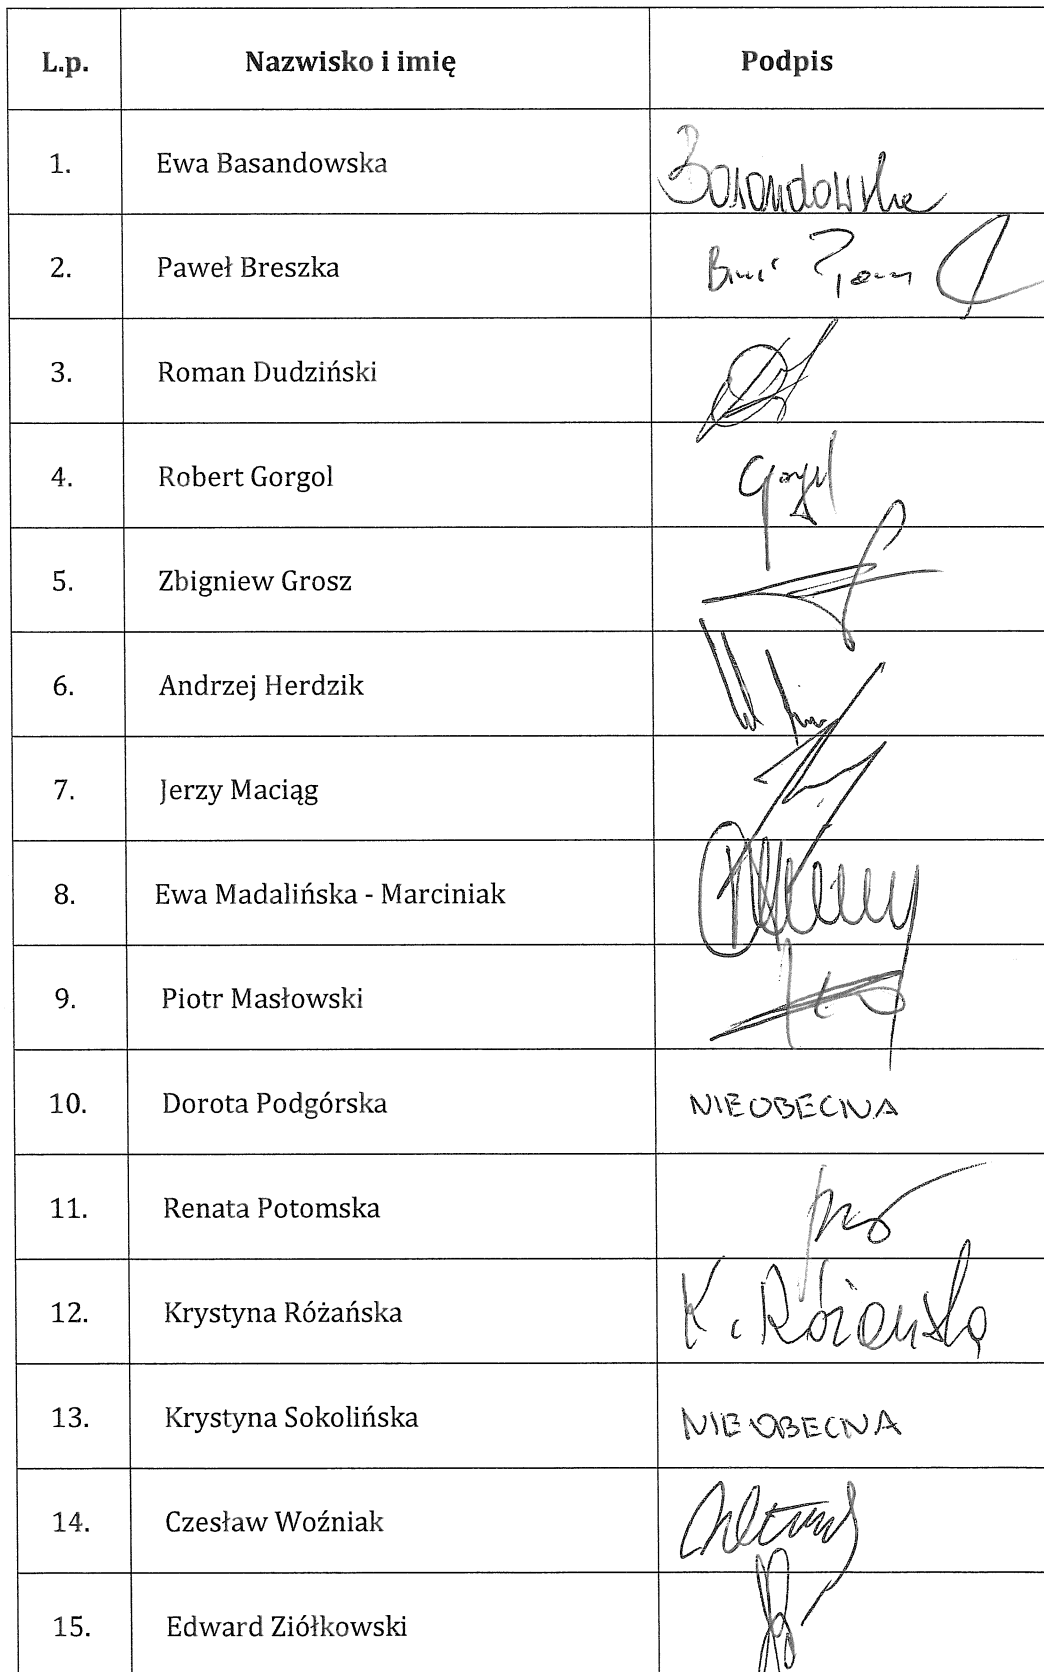 L.p. Nazwisko i imię Podpis
1. Ewa Basandowska Basandowska
2. Paweł Breszka
3. Roman Dudziński
4. Robert Gorgol Gorgol
5. Zbigniew Grosz
6. Andrzej Herdzik
7. Jerzy Maciąg
8. Ewa Madalińska - Marciniak
9. Piotr Masłowski
10. Dorota Podgórska NIEOBECNA
11. Renata Potomska
12. Krystyna Różańska K. Różańska
13. Krystyna Sokolińska NIEOBECNA
14. Czesław Woźniak
15. Edward Ziółkowski